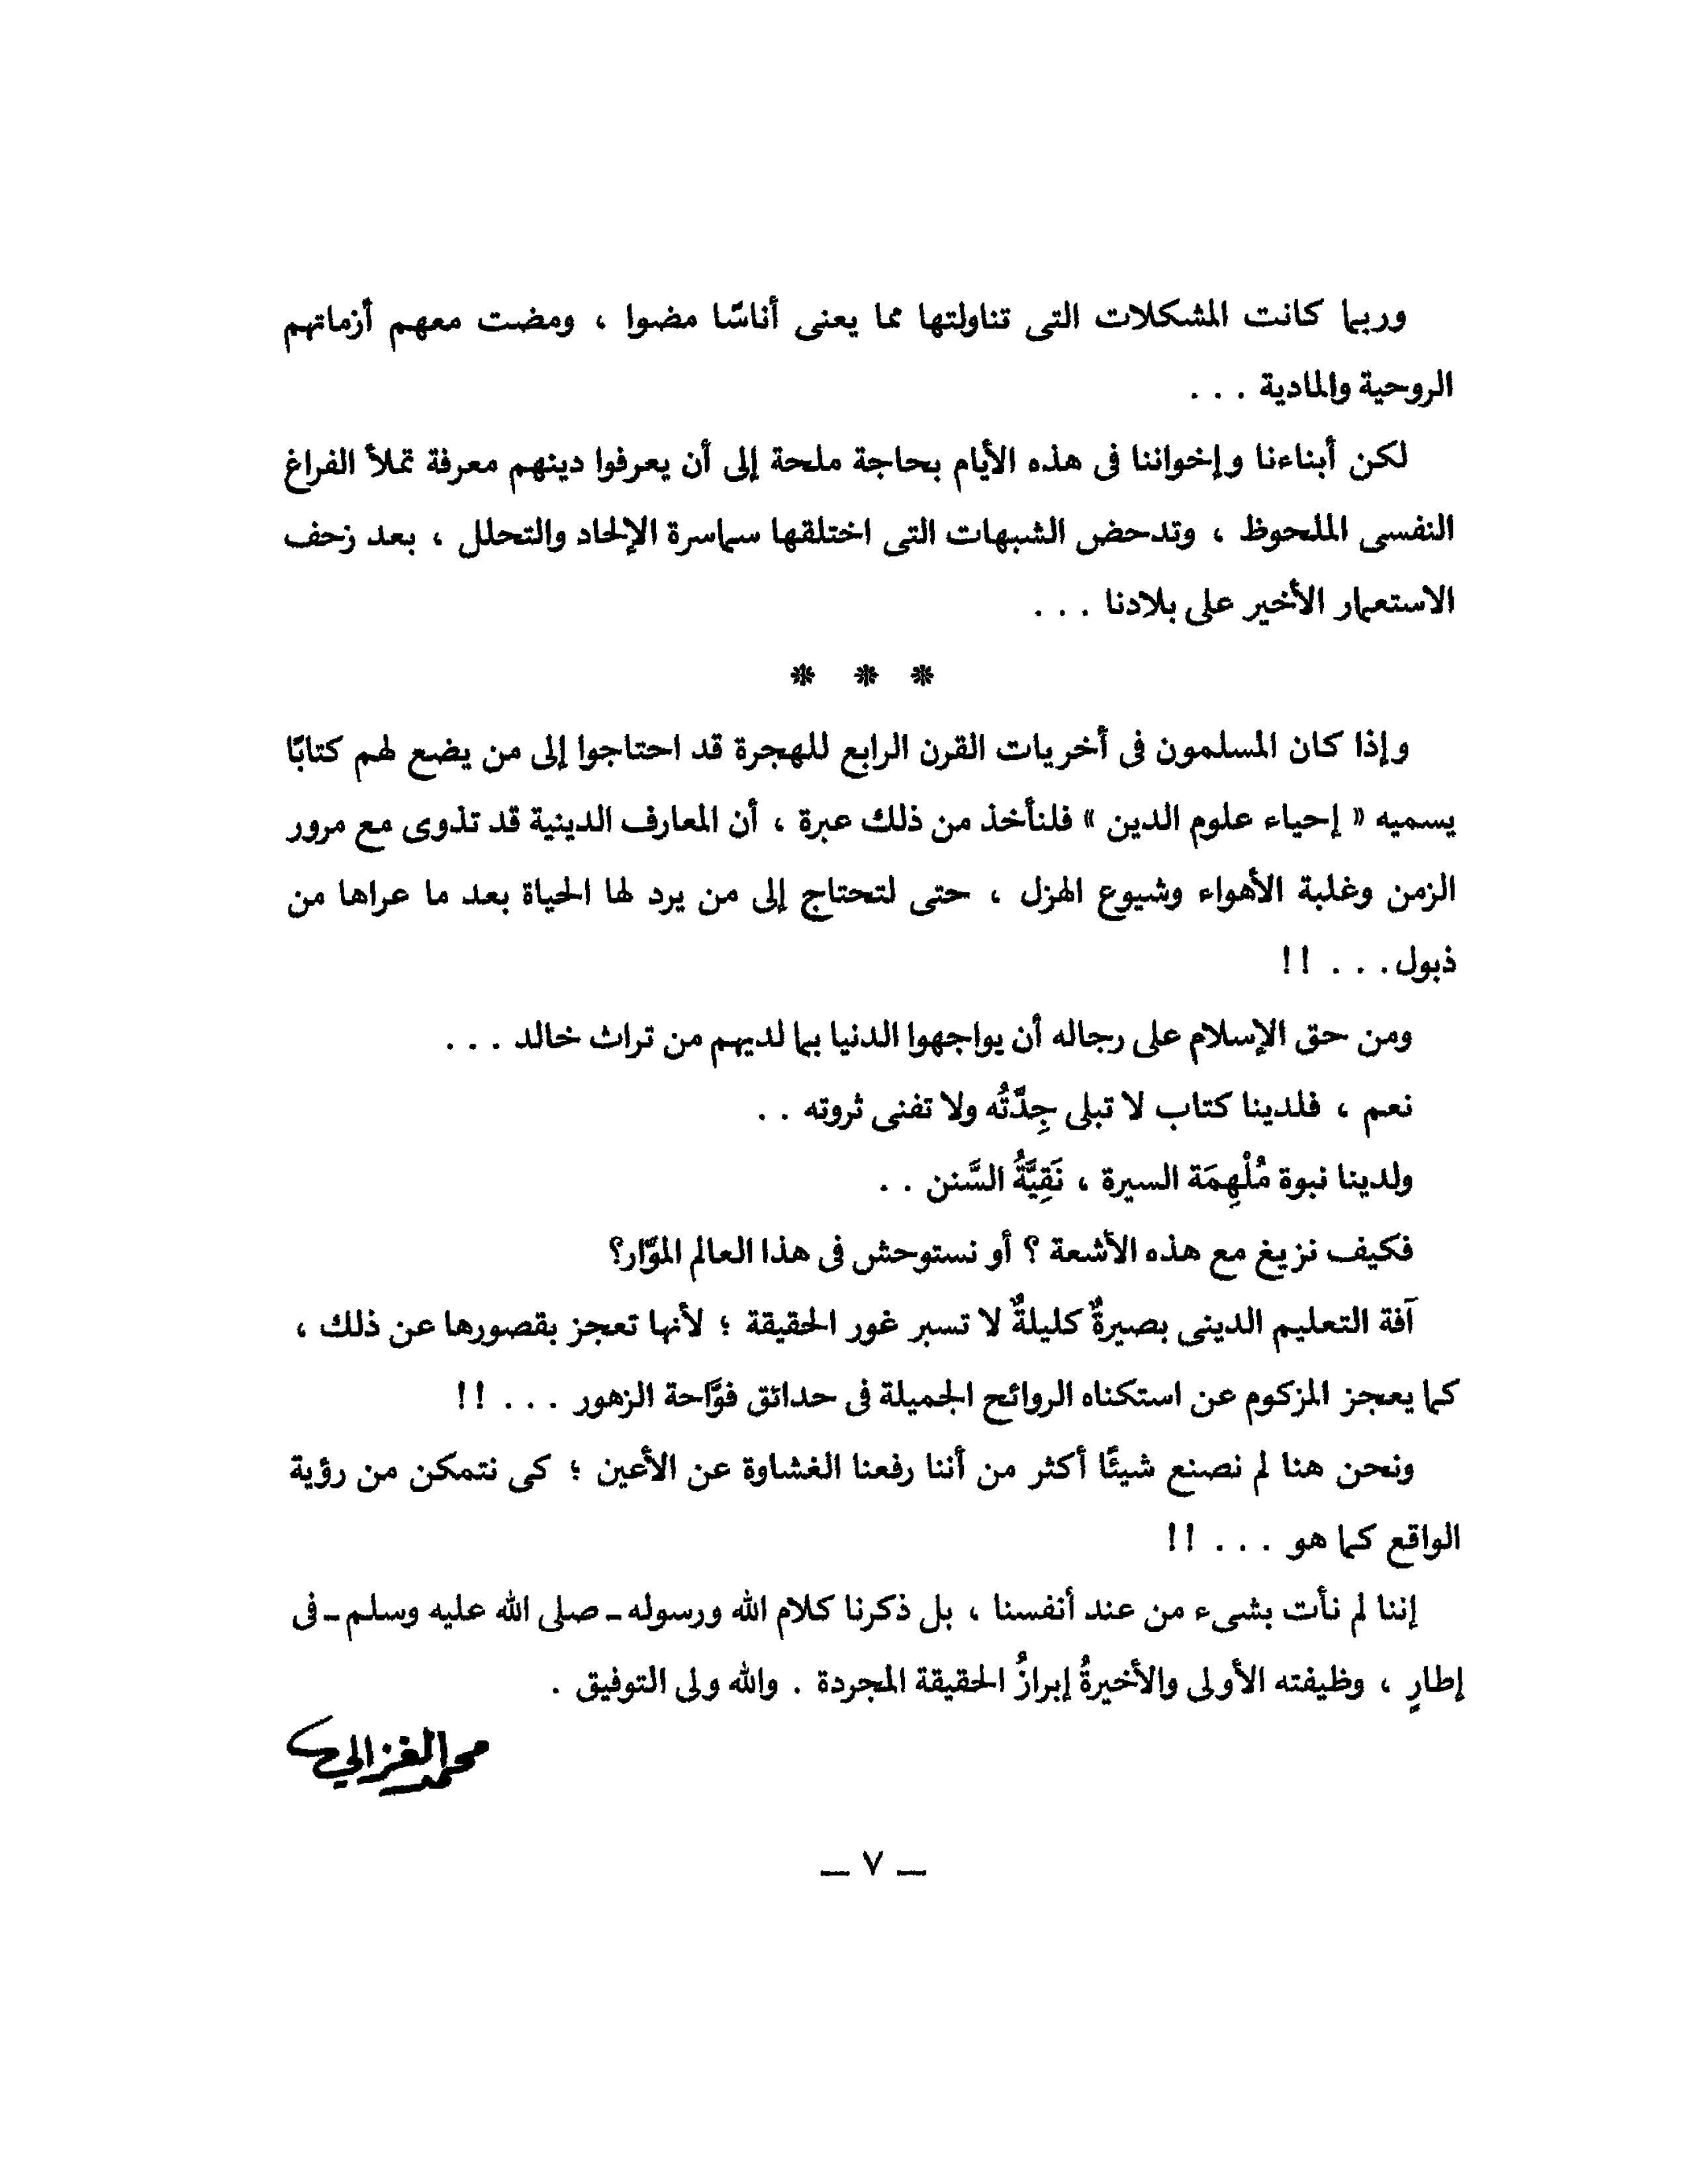 وربما كانت المشكلات التى تناولتها مما يعنى أناسًا مضوا ، ومضت معهم أزماتهم
الروحية والمادية . . .
لكن أبناءنا وإخواننا فى هذه الأيام بحاجة ملحة إلى أن يعرفوا دينهم معرفة تملأ الفراغ
النفسى الملحوظ ، وتدحض الشبهات التى اختلقها سماسرة الإلحاد والتحلل ، بعد زحف
الاستعمار الأخير على بلادنا . . .
* * *
وإذا كان المسلمون فى أخريات القرن الرابع للهجرة قد احتاجوا إلى من يضع لهم كتابًا
يسميه « إحياء علوم الدين » فلنأخذ من ذلك عبرة ، أن المعارف الدينية قد تذوى مع مرور
الزمن وغلبة الأهواء وشيوع الهزل ، حتى لتحتاج إلى من يرد لها الحياة بعد ما عراها من
ذبول . . . !!
ومن حق الإسلام على رجاله أن يواجهوا الدنيا بما لديهم من تراث خالد . . .
نعم ، فلدينا كتاب لا تبلى جِدَّتُه ولا تفنى ثروته . .
ولدينا نبوة مُلْهِمَة السيرة ، نَقِيَّةُ السَّنن . .
فكيف نزيغ مع هذه الأشعة ؟ أو نستوحش فى هذا العالم الموّار؟
آفة التعليم الدينى بصيرةٌ كليلةٌ لا تسبر غور الحقيقة ؛ لأنها تعجز بقصورها عن ذلك ،
كما يعجز المزكوم عن استكناه الروائح الجميلة فى حدائق فوَّاحة الزهور . . . !!
ونحن هنا لم نصنع شيئًا أكثر من أننا رفعنا الغشاوة عن الأعين ؛ كى نتمكن من رؤية
الواقع كما هو . . . !!
إننا لم نأت بشىء من عند أنفسنا ، بل ذكرنا كلام الله ورسوله ـ صلى الله عليه وسلم ـ فى
إطارٍ ، وظيفته الأولى والأخيرةُ إبرازُ الحقيقة المجردة . والله ولى التوفيق .
محمد الغزالي
ـ ٧ ـ